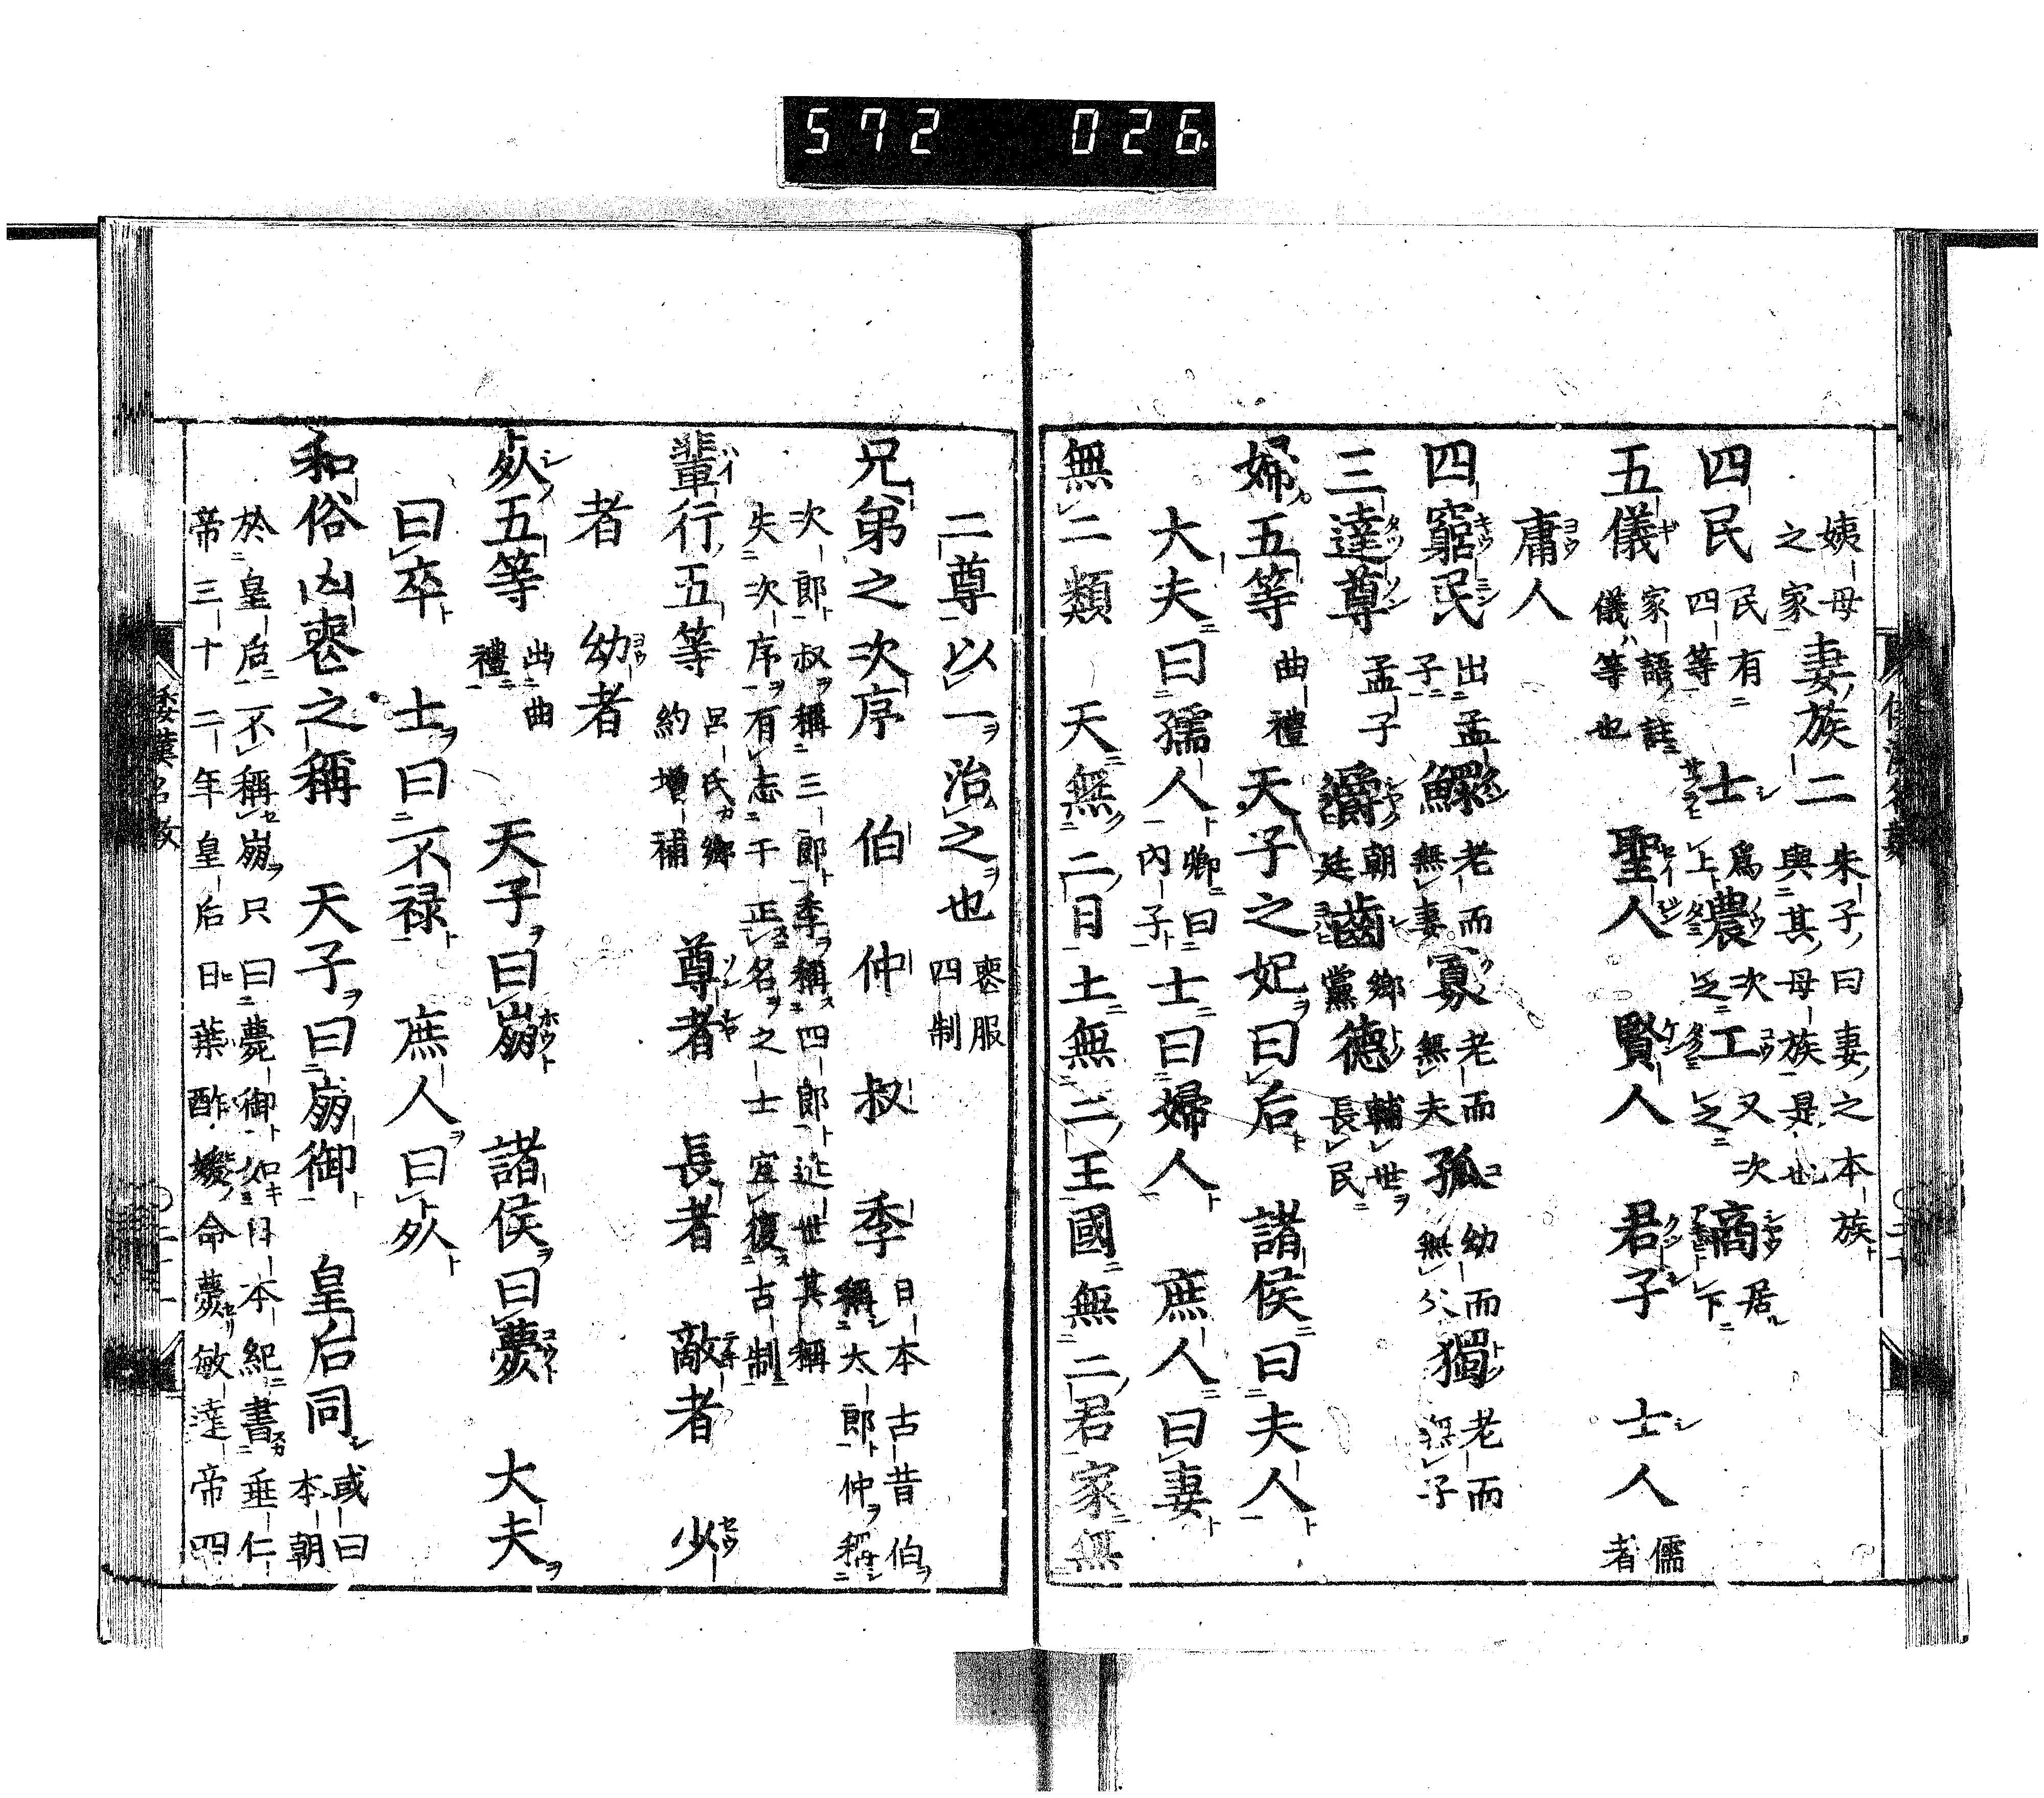 572 026.
姨母之家 妻族二 朱子曰妻之本族與其母族是也
四民 民有四等 士 為上 農 次之 工 又次之 商 居下
五儀 家語註儀等也 聖人 賢人 君子 士人 儒者
庸人
四窮民 出孟子 鰥 老而無妻 寡 老而無夫 孤 幼而無父 獨 老而無子
三達尊 孟子 爵 朝廷 齒 鄉黨 德 輔世長民
婦五等 曲禮 天子之妃曰后 諸侯曰夫人
大夫曰孺人 卿曰內子 士曰婦人 庶人曰妻
無二類 天無二日土無二王國無二君家無
二尊以一治之也 喪服四制
兄弟之次序 伯 仲 叔 季 日本古昔伯稱太郎仲稱
次郎叔稱三郎季稱四郎近世其稱
失次序有志于正名之士宜復古制
輩行五等 呂氏鄉約增補 尊者 長者 敵者 少
者 幼者
死五等 出曲禮 天子曰崩 諸侯曰薨 大夫
曰卒 士曰不祿 庶人曰死
和俗凶喪之稱 天子曰崩御 皇后同 或曰本朝
於皇后不稱崩只曰薨御如日本紀書垂仁
帝三十二年皇后日葉酢媛命薨敏達帝四